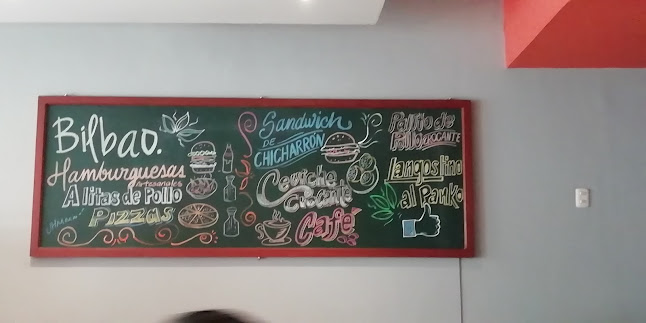 Bilbao.
Hamburguesas
Artesanales
Alitas de Pollo
Pizzas
Sandwich
DE
CHICHARRÓN
Ceviche
Crocante
Café
Pollo
CROCANTE
Langostino
al Panko